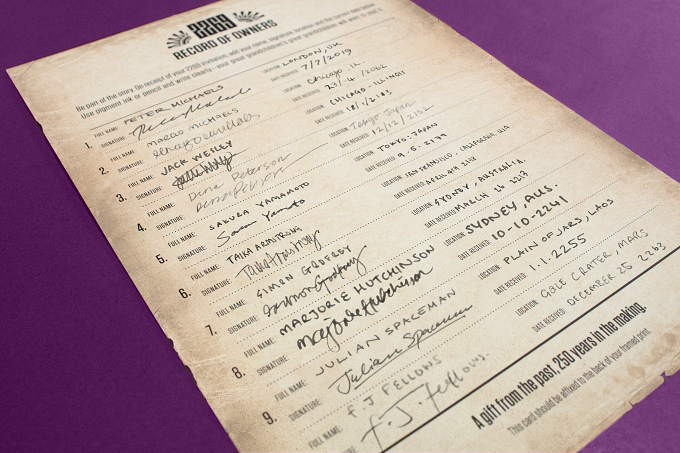 2269
RECORD OF OWNERS
Be part of the story. On receipt of your 2269 invitation, add your name, signature, location and the current date below.
Use pigment ink or pencil and write clearly – your great grandchildren's great grandchildren will want to read it.
1. FULL NAME: PETER MICHAELS LOCATION: LONDON, UK
SIGNATURE: DATE RECEIVED: 7/7/2019
2. FULL NAME: MARGO MICHAELS LOCATION: Chicago IL
SIGNATURE: DATE RECEIVED:
3. FULL NAME: JACK WESLEY LOCATION: CHICAGO - ILLINOIS
SIGNATURE: DATE RECEIVED: 18/1/2103
4. FULL NAME: Dina Peterson LOCATION: Tokyo Japan
SIGNATURE: DATE RECEIVED: 12/12/2152
5. FULL NAME: SAKURA YAMAMOTO LOCATION: TOKYO, JAPAN
SIGNATURE: DATE RECEIVED: 9.5.2179
6. FULL NAME: TAIKA ARMSTRONG LOCATION: SAN FRANCISCO, CALIFORNIA USA
SIGNATURE: Taika Armstrong DATE RECEIVED: APRIL 4TH
7. FULL NAME: SIMON GODFREY LOCATION: SYDNEY, AUSTRALIA.
SIGNATURE: Simon Godfrey DATE RECEIVED: MARCH 24 2213
8. FULL NAME: MARJORIE HUTCHINSON LOCATION: SYDNEY, AUS.
SIGNATURE: Marjorie Hutchinson DATE RECEIVED: 10-10-2241
9. FULL NAME: JULIAN SPACEMAN LOCATION: PLAIN OF JARS, LAOS
SIGNATURE: Julian Spaceman DATE RECEIVED: 1.1.2255
FULL NAME: F.J FELLOWS LOCATION: GALE CRATER, MARS
F.J. Fellows. DATE RECEIVED: DECEMBER 25 2263
A gift from the past, 250 years in the making.
This card should be affixed to the back of your framed print.